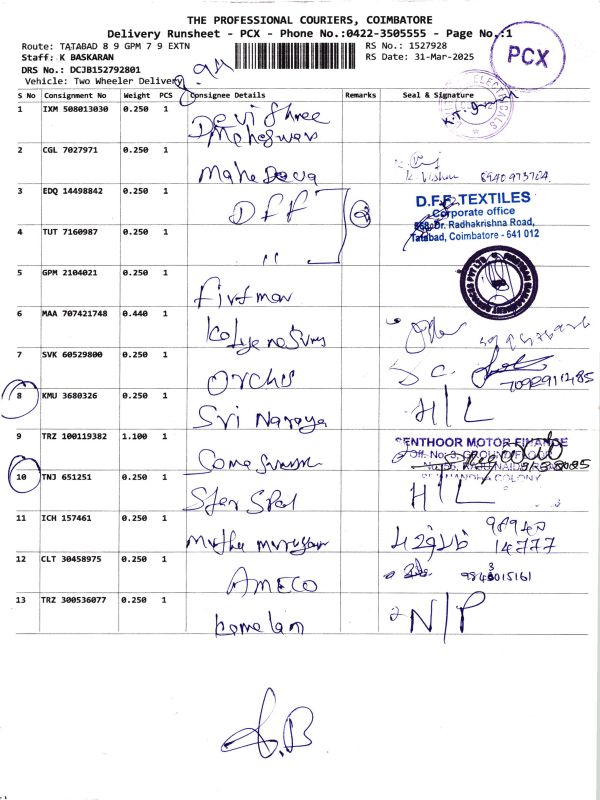 THE PROFESSIONAL COURIERS, COIMBATORE
Delivery Runsheet - PCX - Phone No.:0422-3505555 - Page No.:1
Route: TATABAD 8 9 GPM 7 9 EXTN
RS No.: 1527928
Staff: K BASKARAN
RS Date: 31-Mar-2025
DRS No.: DCJB152792801
Vehicle: Two Wheeler Delivery
PCX
S No Consignment No Weight PCS Consignee Details Remarks Seal & Signature
1 IXM 508013030 0.250 1 Devi Shree
2 CGL 7027971 0.250 1 Mahadeva K Vishnu
3 EDQ 14498842 0.250 1 DFF
D.F.F. TEXTILES
Corporate office
Dr. Radhakrishna Road,
Tatabad, Coimbatore - 641 012
4 TUT 7160987 0.250 1 "
5 GPM 2104021 0.250 1 Firstman
6 MAA 707421748 0.440 1
7 SVK 60529800 0.250 1 Orchis
8 KMU 3680326 0.250 1 Sri Naraya H/L
9 TRZ 100119382 1.100 1
SENTHOOR MOTOR FINANCE
10 TNJ 651251 0.250 1 H/L
11 ICH 157461 0.250 1 Muthu Murugan 98942
14777
12 CLT 30458975 0.250 1 AMECO
13 TRZ 300536077 0.250 1 Komalam N/P